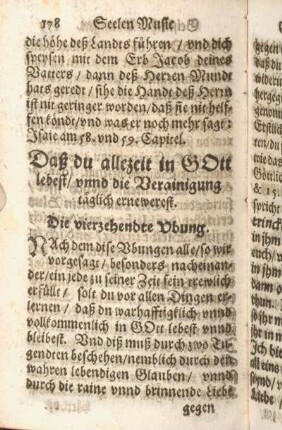 178 Seelen Music
die höhe deß Landts führen / vnd dich
speysen mit dem Erb Jacob deines
Vatters / dann deß Herren Mundt
hats geredt / sihe die Handt deß Herrn
ist nit geringer worden / daß sie nit helf-
fen köndt / vnd was er noch mehr sagt:
Isaie am 58. vnd 59. Capitel.
Daß du allezeit in GOtt
lebest / vnnd die Verainigung
täglich ernewerest.
Die vierzehendte Vbung.
NAch dem dise Vbungen alle / so wir
vorgesagt / besonders nacheinan-
der / ein jede zu seiner Zeit fein trewlich
erfüllt / solt du vor allen Dingen er-
lernen / daß du warhafftigklich vnnd
vollkommenlich in GOtt lebest vnnd
bleibest. Vnd diß muß durch zwo Tu-
gendten beschehen / newblich durch den
wahren lebendigen Glauben / vnnd
durch die raine vnnd brinnende Liebe
gegen